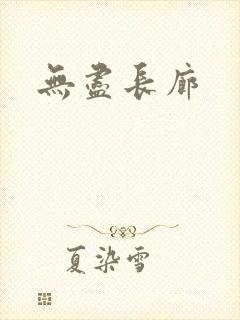 無盡長廊
夏染雪